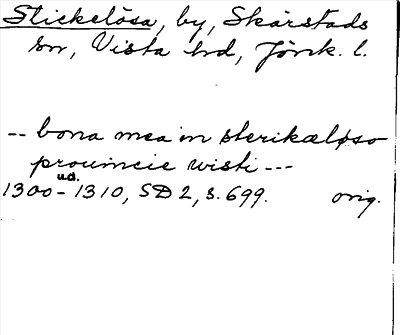 Stickelösa, by, Skärstads
sn, Vista hd, Jönk. l.
-- bona mea in sterikæløso
prouincie wisti ---
u.d.
1300-1310, SD 2, s. 699. orig.